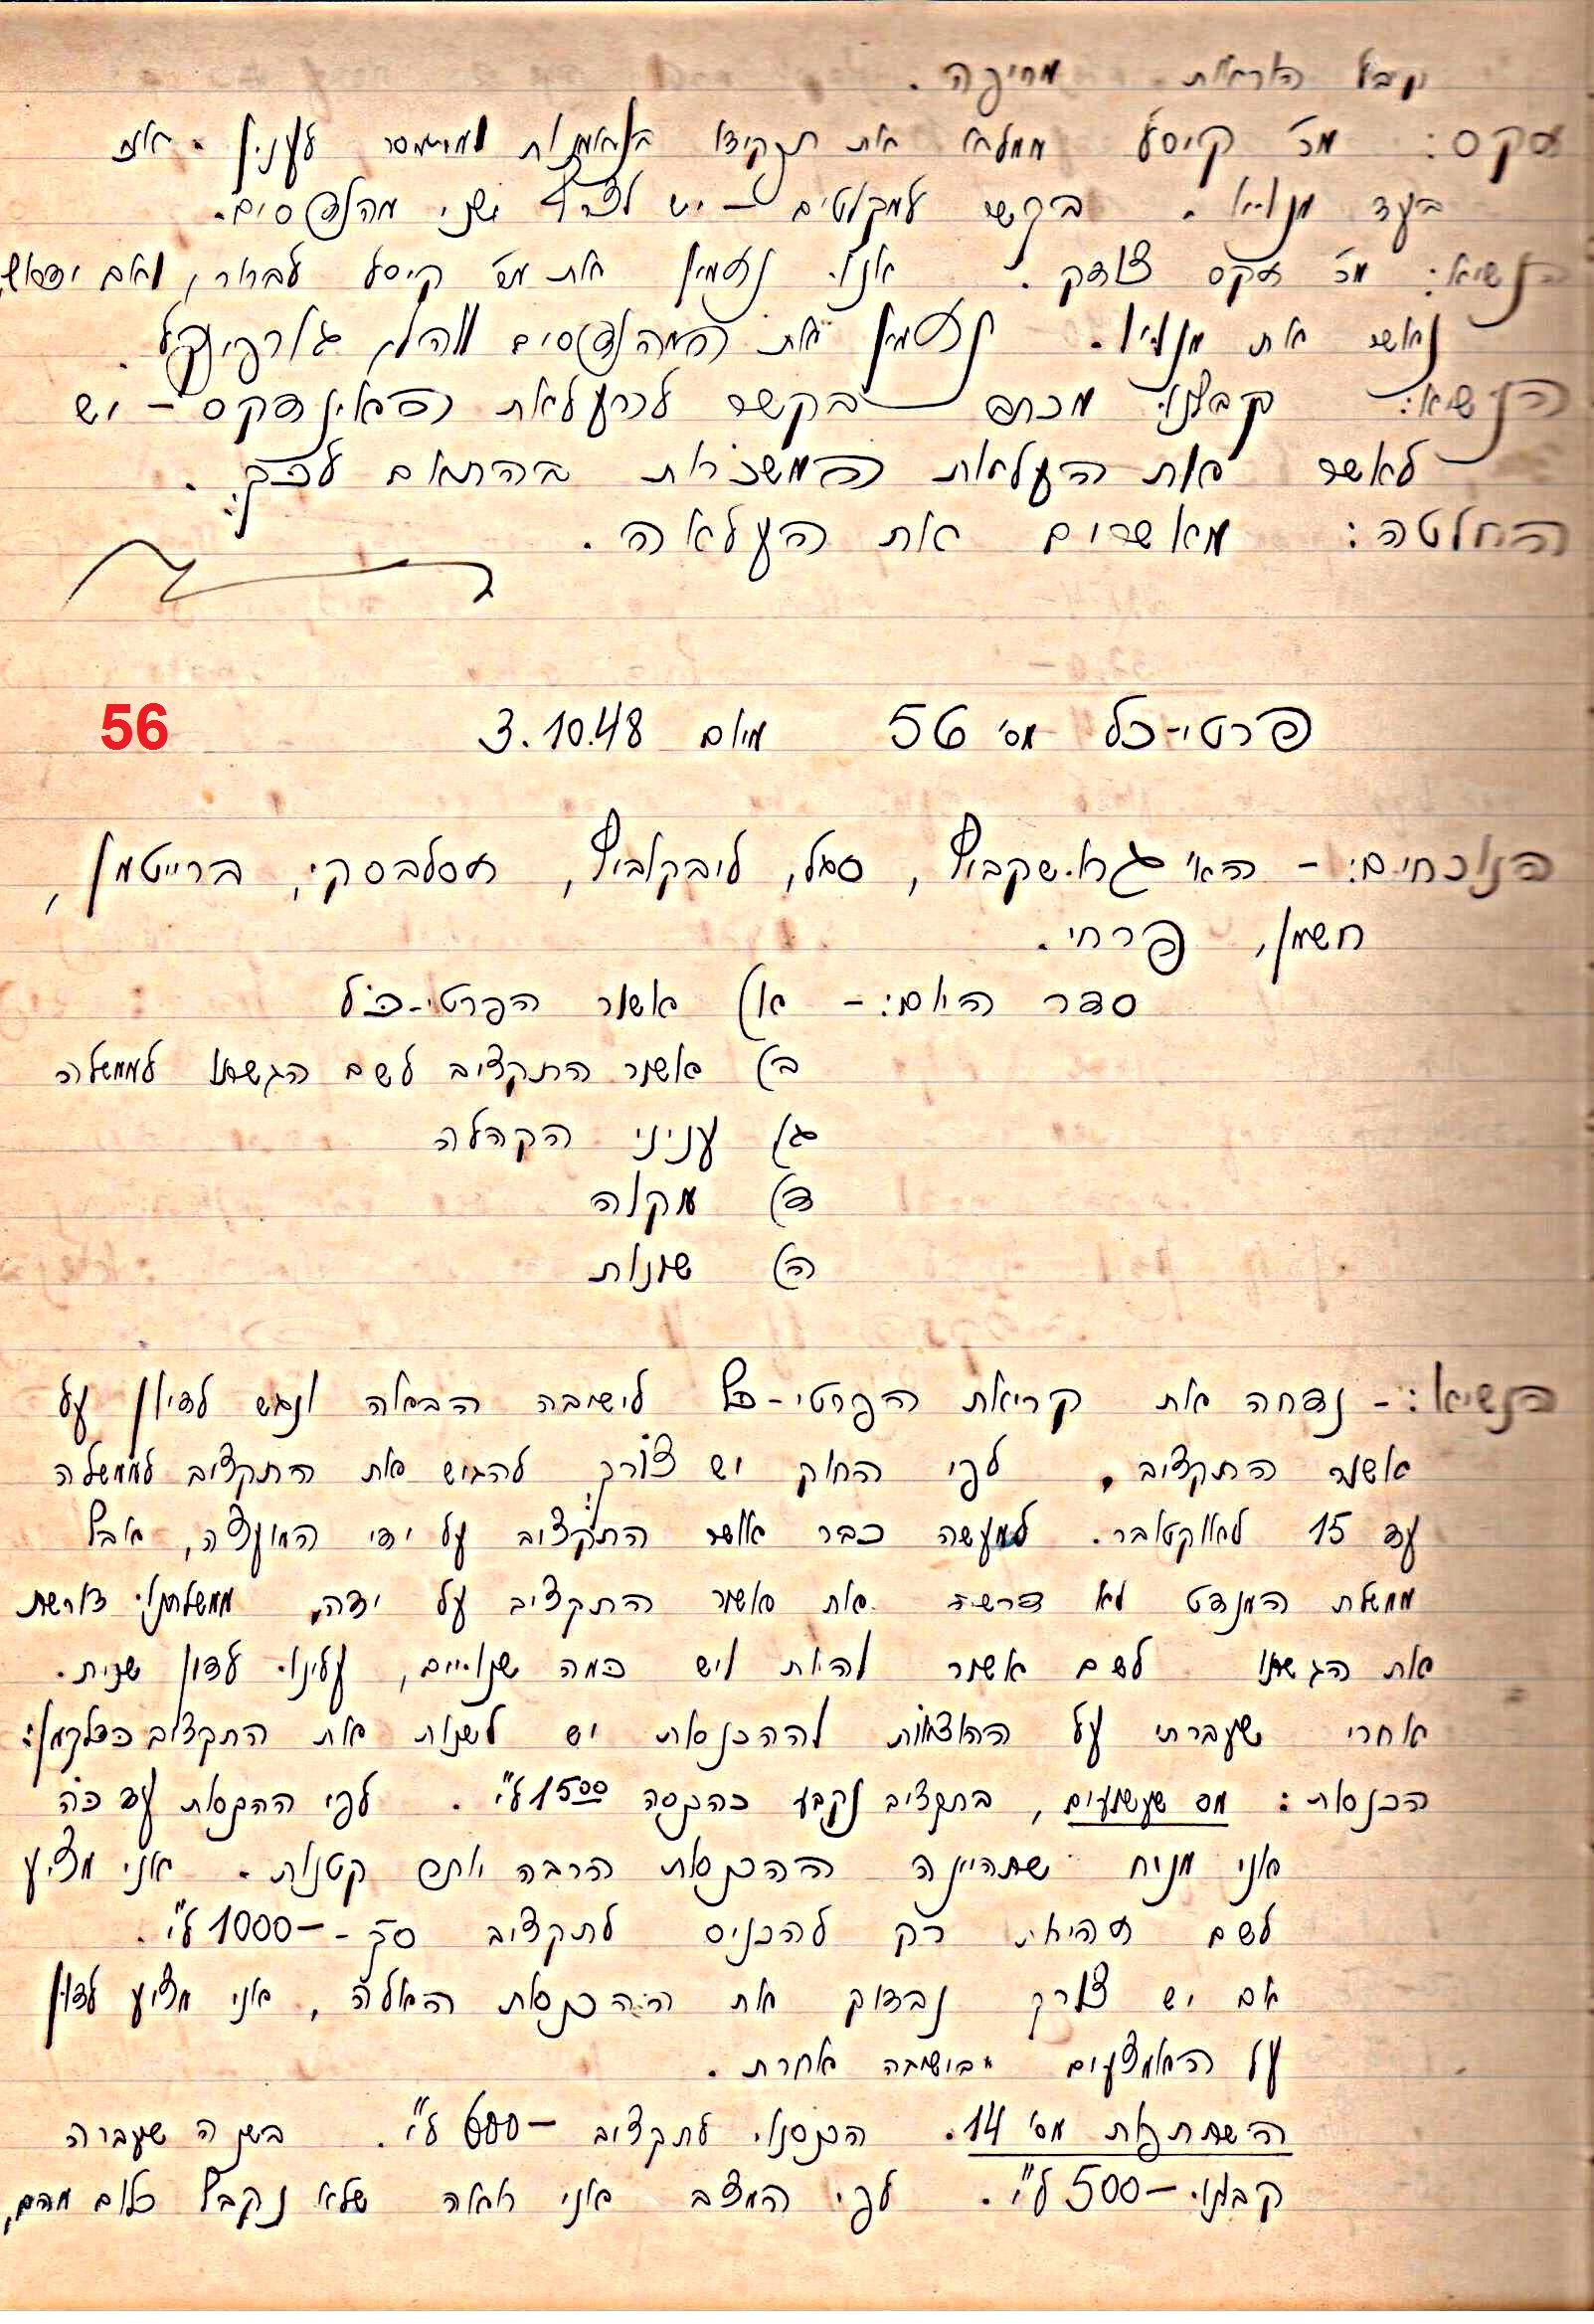 קבל הוראות מחיפה.
זקס: מר קייסע ממלא את תפקידו בנאמנות ומתמסר לענין. אני
בעד מנויו. בקשר למקלטים – יש לצרף שני מהנדסים.
הנשיא: מר זקס צודק. אנו נזמין את מר קייסע לברור, ואם
נאשר את מנויו. נזמין את המהנדסים והלן גורפינקל.
הנשיא: קבלנו מכתב בקשר להעלאת האינדקס – יש
לאשר את העלאת המשכורת בהתאם לכך.
החלטה: מאשרים את העלאה.
56
פרטי-כל מס' 56 מיום 3.10.48
הנוכחים: – הא' גרא.שקביץ, סגל, ליבקוביץ, זסלבסקי, ברייטמן,
חשמן, פרחי.
סדר היום: – א) אשור הפרטי-כל
ב) אשור התקציב לשם הגשתו לממשלה
ג) עניני הקהלה
ד) מקוה
ה) שונות
הנשיא: – נדחה את קריאת הפרטי-כל לישיבה הבאה ונגש לדיון על
אשור התקציב. לפי החוק יש צורך להגיש את התקציב לממשלה
עד 15 לאוקטובר. למעשה כבר אושר התקציב על ידי המועצה, אבל
ממשלת המנדט לא דרשה את אשור התקציב על ידה, ממשלתנו דורשת
את הגשתו לשם אשור והיות ויש כמה שנויים, עלינו לדון שנית.
אחרי שעברתי על ההוצאות וההכנסות יש לשנות את התקציב כדלקמן:
הכנסות: מס שעשועים, בתקציב נקבע כהכנסה 1500 לי". לפי ההכנסות עד כה
אני מניח שתהיינה ההכנסות הרבה יותר קטנות. אני מציע
לשם זהירות רק להכניס לתקציב סך –1000 לי".
אם יש צורך נבדוק את ההכנסות האלה, אני מציע לדון
על האמצעים בישיבה אחרת.
השתתפות מס' 14. הכנסנו לתקציב –600 לי". בשנה שעברה
קבלנו –500 לי". לפי המצב אני רואה שלא נקבל כלום מהם,